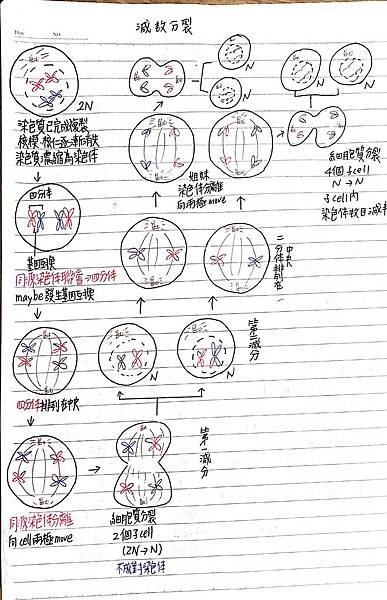 減數分裂
2N
染色質已完成複製
核模、核仁逐漸消失
染色質濃縮為染色体
四分体
基因互換
同源染色体聯會→四分体
maybe發生基因互換
四分体排列在中央
同源染色体分離
向cell兩極move
細胞質分裂
2個子cell
(2N→N)
不成對染色体
第一減分
N
N
第二減分
二分体排列在
中央
姐妹
染色体分離
向兩極move
N
N
N
N
細胞質分裂
4個子cell
N→N
子cell內
染色体數目減半